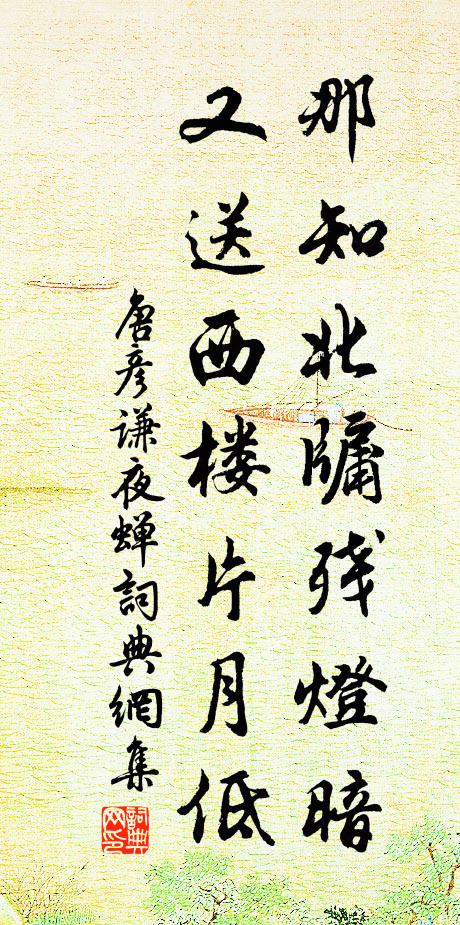 那知北牖残燈暗
又送西楼片月低
唐彦谦夜蝉詞典網集
詞典網印